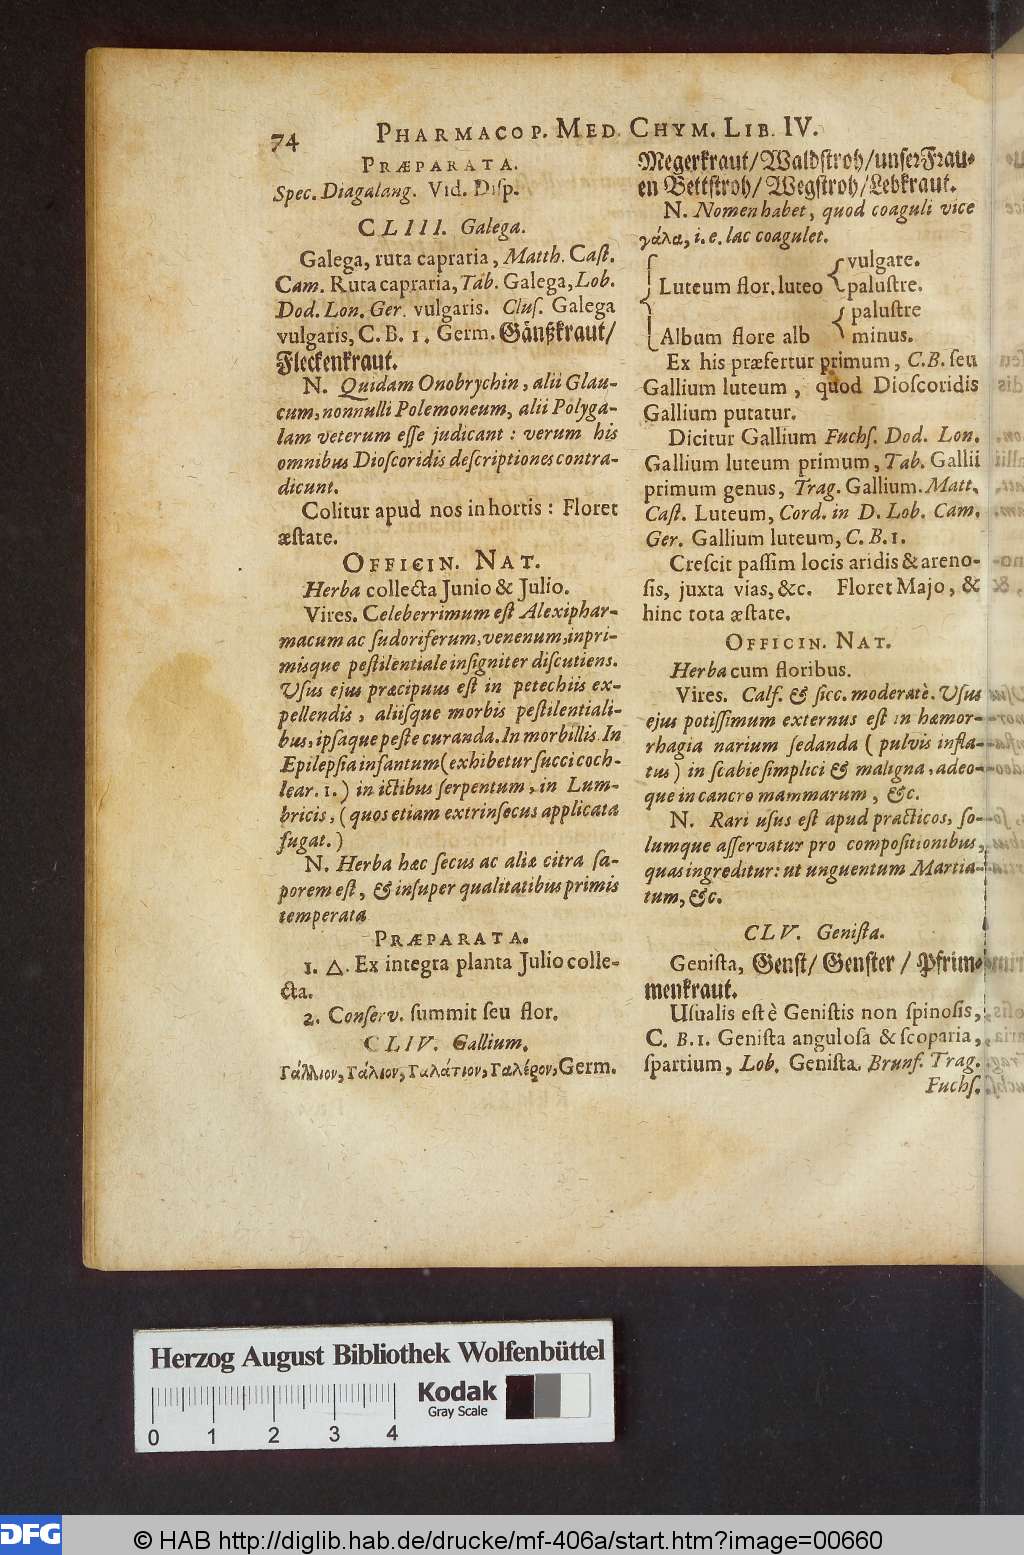 74 PHARMACOP. MED. CHYM. LIB. IV.
PRÆPARATA.
Spec. Diagalang. Vid. Diſp.
CLIII. Galega.
Galega, ruta capraria, Matth. Caſt.
Cam. Ruta capraria, Tab. Galega, Lob.
Dod. Lon. Ger. vulgaris. Cluſ. Galega
vulgaris, C. B. 1. Germ. Gänßkraut/
Fleckenkraut.
N. Quidam Onobrychin, alii Glau-
cum, nonnulli Polemoneum, alii Polyga-
lam veterum eſſe judicant: verum his
omnibus Dioſcoridis deſcriptiones contra-
dicunt.
Colitur apud nos in hortis: Floret
æſtate.
OFFICIN. NAT.
Herba collecta Junio & Julio.
Vires. Celeberrimum eſt Alexiphar-
macum ac ſudoriferum, venenum, inpri-
misque peſtilentiale inſigniter diſcutiens.
Uſus ejus præcipuus eſt in petechiis ex-
pellendis, aliiſque morbis peſtilentiali-
bus, ipſaque peſte curanda. In morbillis. In
Epilepſia infantum (exhibetur ſucci coch-
lear. 1.) in ictibus ſerpentum, in Lum-
bricis, (quos etiam extrinſecus applicata
fugat.)
N. Herba hæc ſecus ac aliæ citra ſa-
porem eſt, & inſuper qualitatibus primis
temperata
PRÆPARATA.
1. △. Ex integra planta Julio colle-
cta.
2. Conſerv. ſummit ſeu flor.
CLIV. Gallium.
Γάλλιον, Γάλιον, Γαλάτιον, Γαλέρον, Germ.
Megerkraut/Waldſtroh/unſer Frau-
en Bettſtroh/ Wegſtroh/Lebkraut.
N. Nomen habet, quod coaguli vice
γάλα, i. e. lac coagulet.
vulgare.
Luteum flor. luteo palustre.
palustre
Album flore alb minus.
Ex his præfertur primum, C.B. ſeu
Gallium luteum, quod Dioſcoridis
Gallium putatur.
Dicitur Gallium Fuchſ. Dod. Lon.
Gallium luteum primum, Tab. Gallii
primum genus, Trag. Gallium. Matt.
Caſt. Luteum, Cord. in D. Lob. Cam.
Ger. Gallium luteum, C. B. 1.
Creſcit paſſim locis aridis & areno-
ſis, juxta vias, &c. Floret Majo, &
hinc tota æſtate.
OFFICIN. NAT.
Herba cum floribus.
Vires. Calf. & ſicc. moderatè. Uſus
ejus potiſſimum externus eſt in hæmor-
rhagia narium ſedanda (pulvis infla-
tus) in ſcabie ſimplici & maligna, adeo-
que in cancro mammarum, &c.
N. Rari uſus eſt apud practicos, ſo-
lumque aſſervatur pro compoſitionibus,
quas ingreditur: ut unguentum Martia-
tum, &c.
CLV. Geniſta.
Geniſta, Genſt/ Genſter / Pfrim-
menkraut.
Uſualis eſt è Geniſtis non ſpinoſis,
C. B. 1. Geniſta anguloſa & ſcoparia,
ſpartium, Lob. Geniſta. Brunf. Trag.
Fuchſ.
Herzog August Bibliothek Wolfenbüttel
Kodak
Gray Scale
0 1 2 3 4
DFG
© HAB http://diglib.hab.de/drucke/mf-406a/start.htm?image=00660